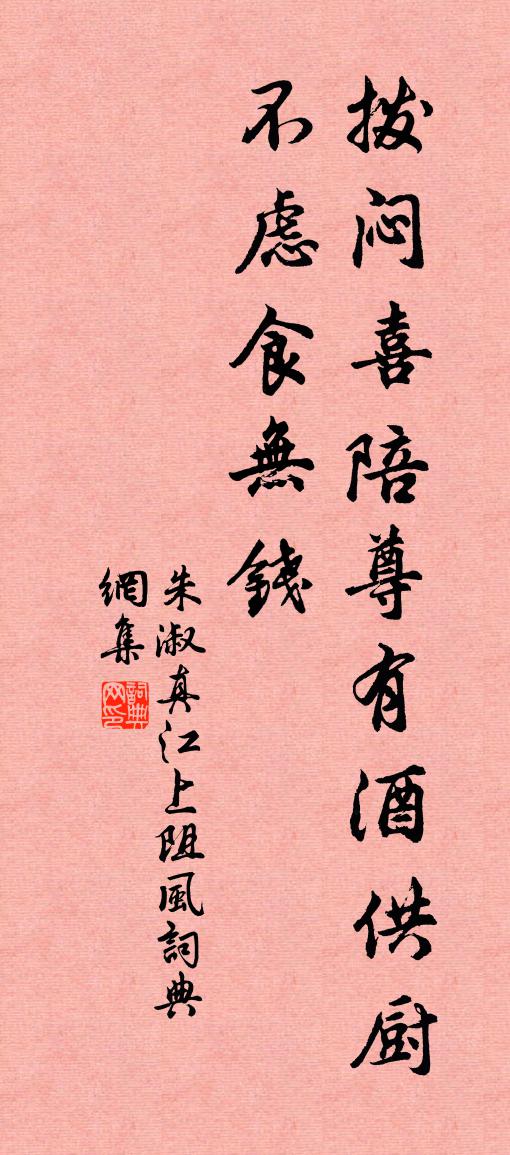 拨闷喜陪尊有酒供厨
不虑食無錢
朱淑真江上阻風詞典
網集
詞典网印